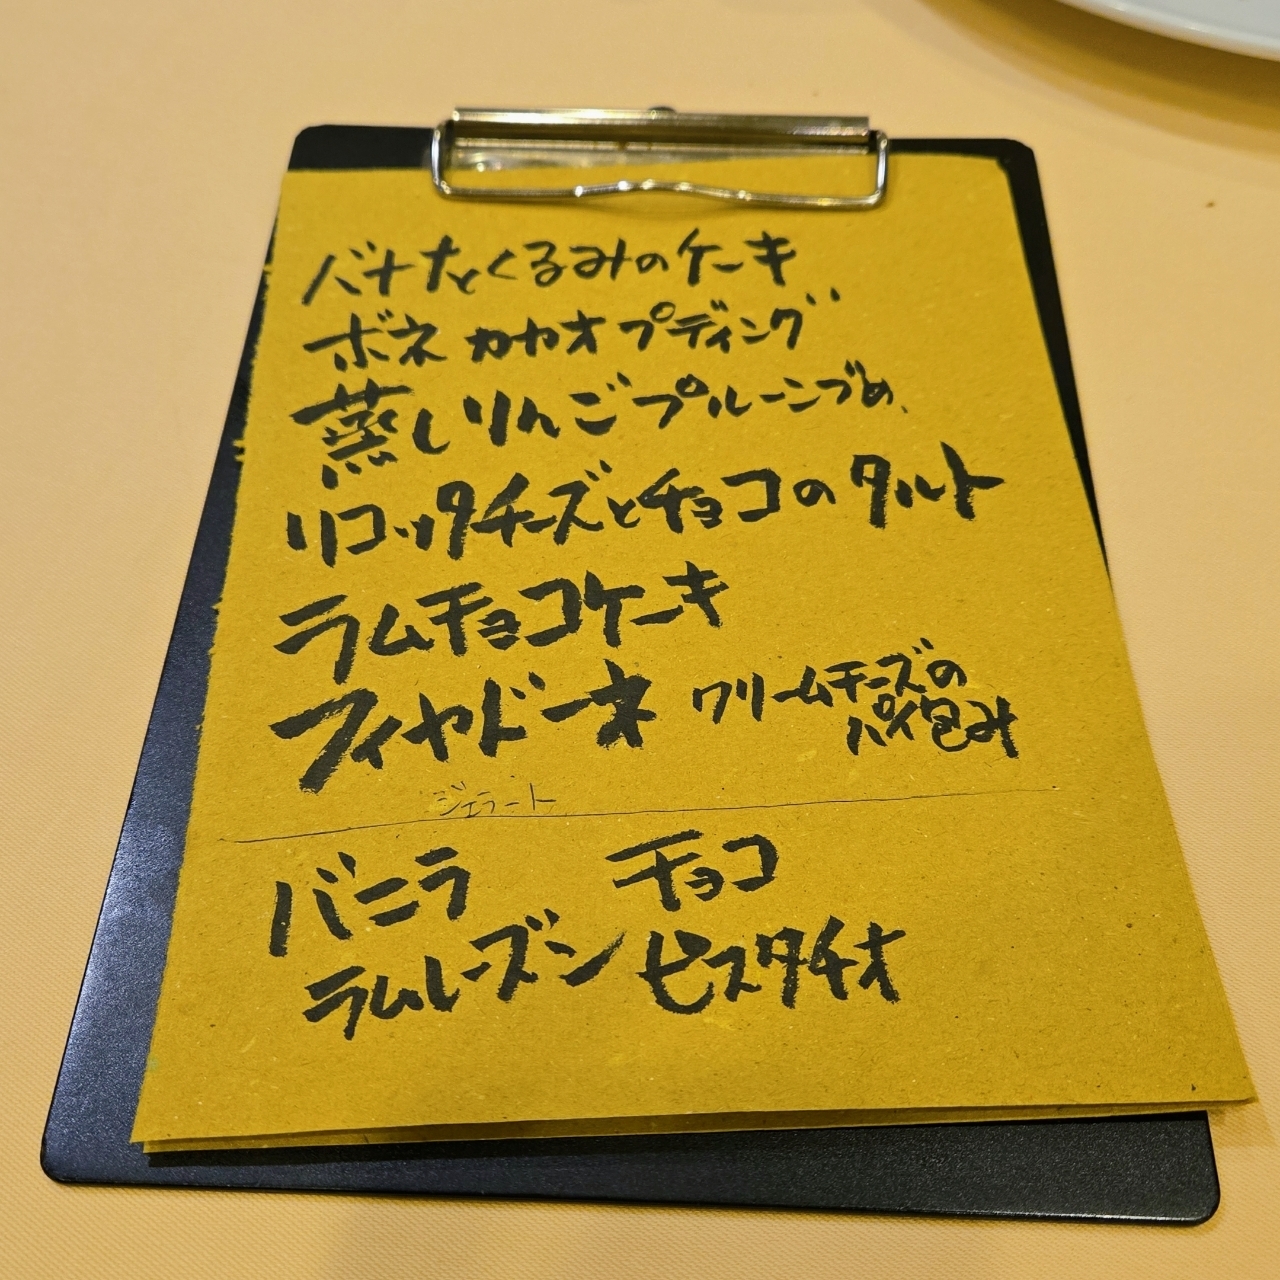 バナナとくるみのケーキ
ボネ カカオプディング
蒸しりんごプルーンづめ
リコッタチーズとチョコのタルト
ラムチョコケーキ
フィヤドーネ クリームチーズの
パイ包み
ジェラート
バニラ チョコ
ラムレーズン ピスタチオ